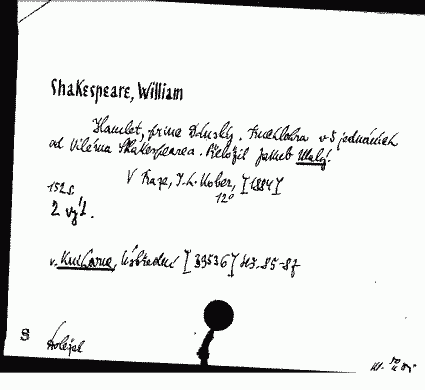 Shakespeare, William
Hamlet, princ Dánský. Truchlohra v 5 jednáních
od Viléma Shakespearea. Přeložil Jakub Malý.
V Praze, I. L. Kober, [1884]
12°
152 s.
2 vyd.
v. Knihovna, Ústřední [39536] 
S